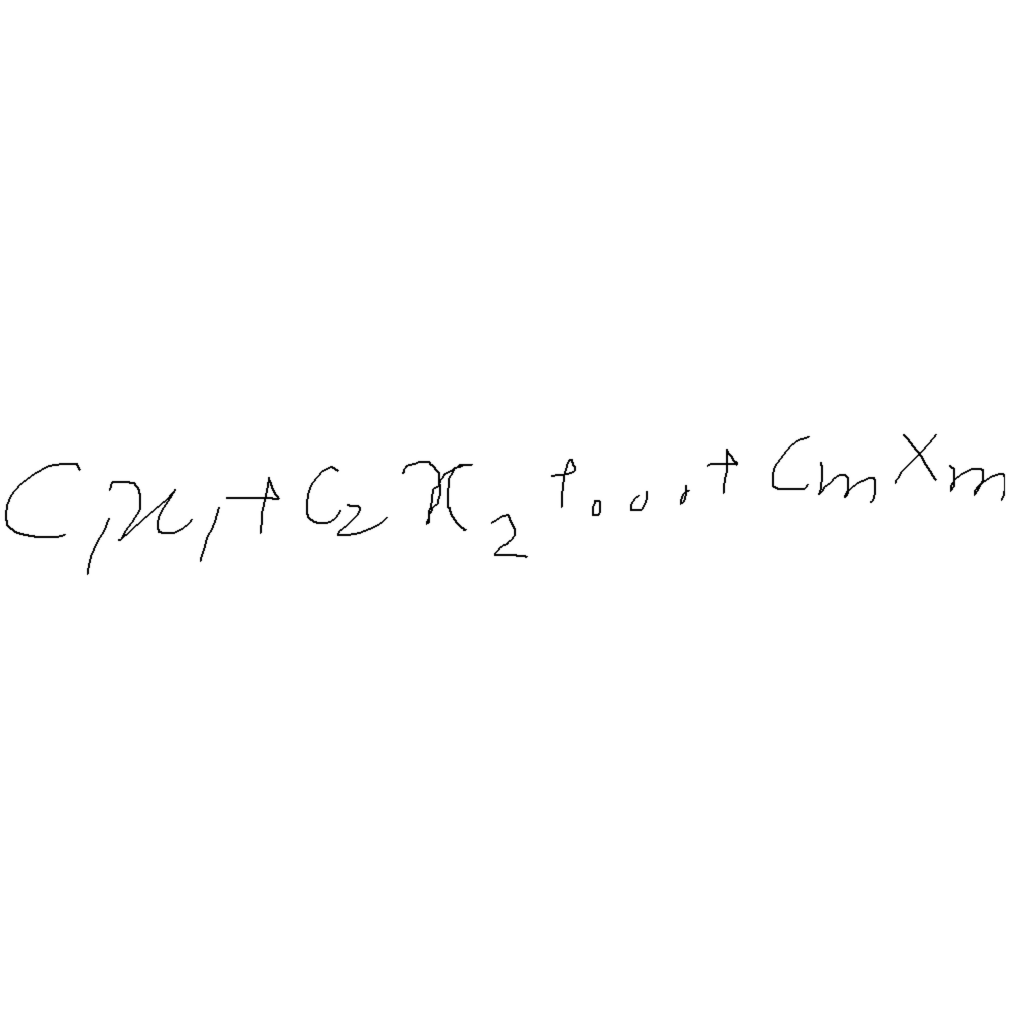 C₁x₁+C₂x₂+...+Cₘxₘ